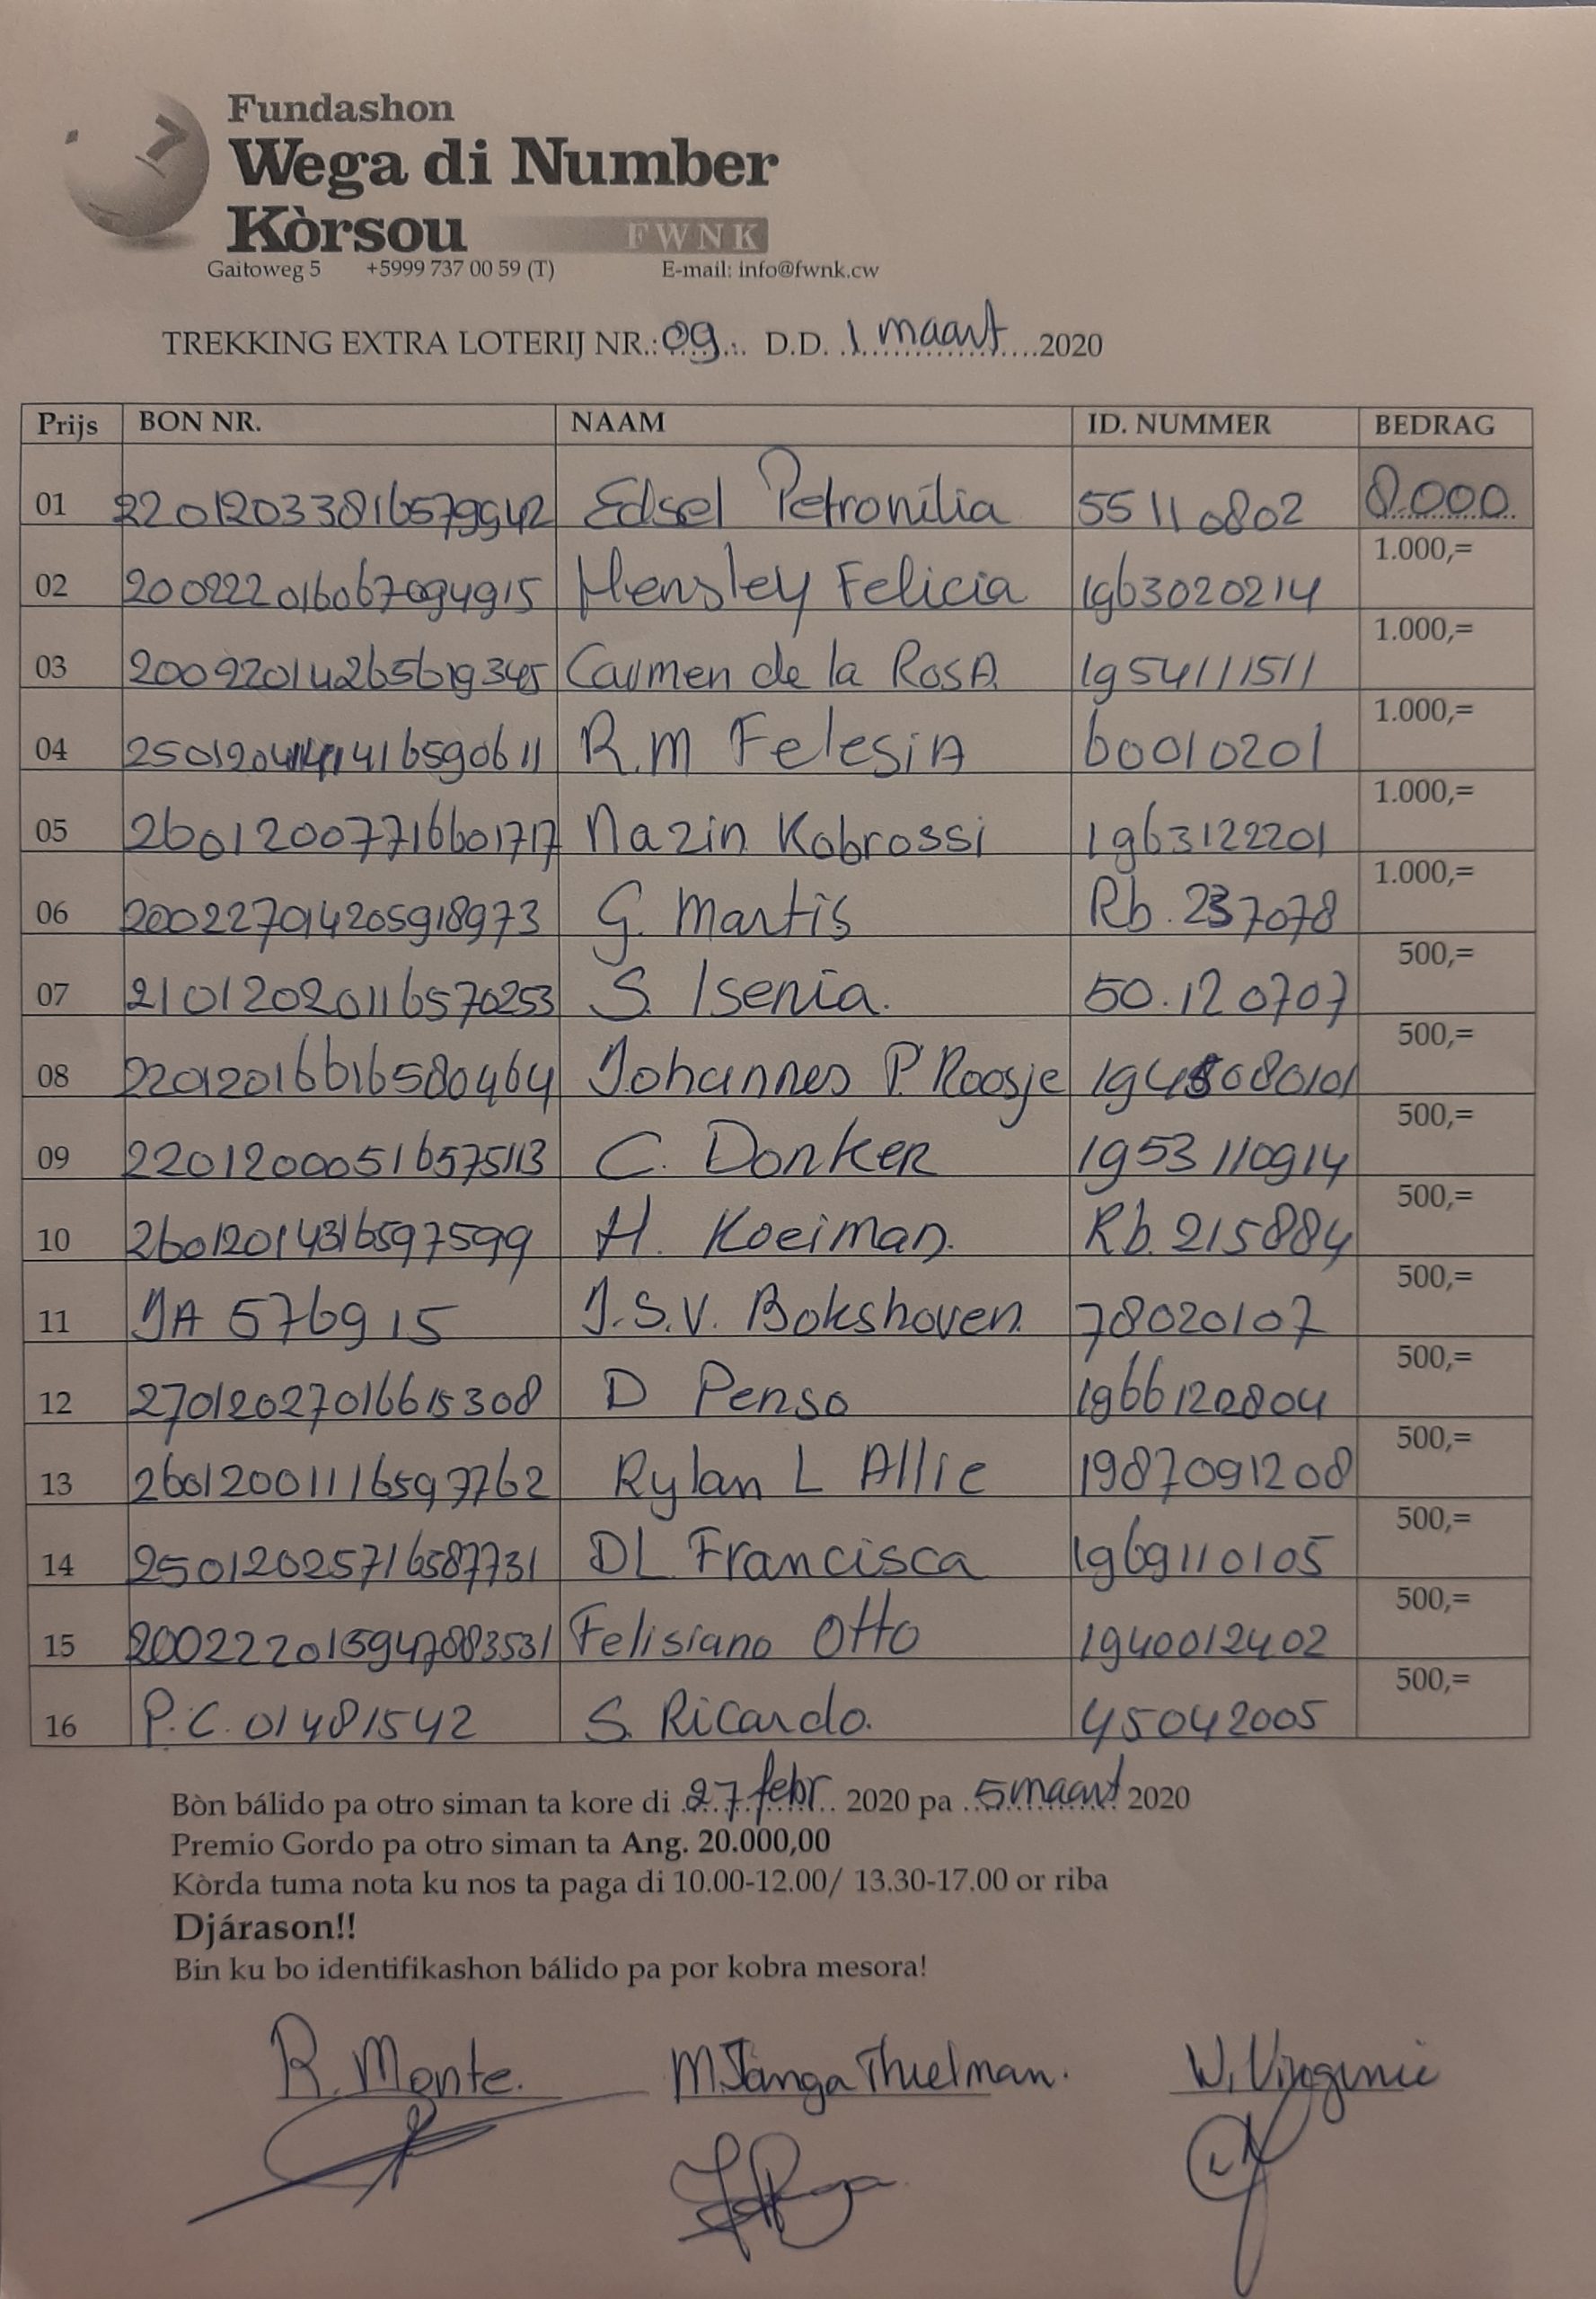 Fundashon
Wega di Number
Kòrsou FWNK
Gaitoweg 5 +5999 737 00 59 (T) E-mail: info@fwnk.cw
TREKKING EXTRA LOTERIJ NR.: 09 D.D. 1 maart 2020
Prijs BON NR. NAAM ID. NUMMER BEDRAG
01 22012033816579942 Edsel Petronilia 55110802 8.000
02 200222016067094915 Hensley Felicia 1963020214 1.000,=
03 Carmen de la RosA 1954111511 1.000,=
04 R.M FelesiA 60010201 1.000,=
05 26012007716601717 Nazin Kobrossi 1963122201 1.000,=
06 200227014205918973 G. Martis Rb. 237078 1.000,=
07 21012020116570253 S. Isenia. 50.120707 500,=
08 22012016616580464 Johannes P. Roosje 500,=
09 22012000516575113 C. Donker 1953110914 500,=
10 26012014316597599 H. Koeiman. Rb. 215884 500,=
11 JA 576915 J.S.V. Bokshoven 78020107 500,=
12 27012027016615308 D Penso 1966120804 500,=
13 26012001116597762 Rylan L Allie 1987091208 500,=
14 25012025716587731 DL Francisca 1969110105 500,=
15 200222015947883531 Felisiano Otto 1940012402 500,=
16 P.C. 01481542 S. Ricardo. 45042005 500,=
Bòn bálido pa otro siman ta kore di 27 febr. 2020 pa 5 maart 2020
Premio Gordo pa otro siman ta Ang. 20.000,00
Kòrda tuma nota ku nos ta paga di 10.00-12.00/ 13.30-17.00 or riba
Djárason!!
Bin ku bo identifikashon bálido pa por kobra mesora!
R. Monte. M Janga Thielman. W. Virginie